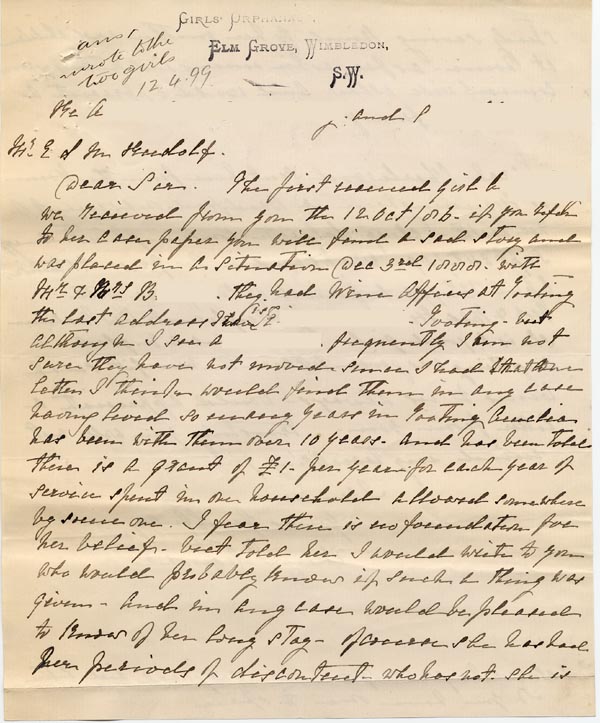 GIRLS' ORPHANAGE,
ELM GROVE, WIMBLEDON,
S.W.
ans,
wrote to the
two girls
12.4.99
Re A and P
Mr E d M Rudolf.
Dear Sir. The first named girl
we received from you the 12 Oct /86. if you refer
to her case paper you will find a sad story and
was placed in a situation Dec 3rd 1888. with
Mr & Mrs B. they had Wine Offices at Tooting
the last address I have is Tooting - but
although I see A frequently I am not
sure they have not moved since I had that one
letter I think would find them in any case
having lived so many years in Tooting Amelia
has been with them over 10 years. and has been told
there is a grant of £1- per year for each year of
service spent in one household allowed somewhere
by some one. I fear there is no foundation for
her belief. but told her I would write to you
who would probably know if such a thing was
given - and in any case would be pleased
to know of her long stay - of course she has had
her periods of discontent - who has not. she is